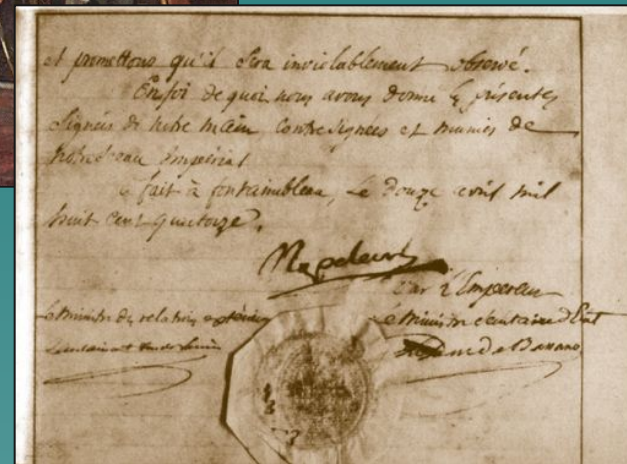 et promettons qu'il sera inviolablement observé.
En foi de quoi nous avons donné les présentes
signées de notre main, contresignées et munies de
notre sceau impérial
fait à fontainebleau, le douze avril mil
huit cent quatorze.
Napoleon
Par l'Empereur
Le Ministre des relations extérieures
Le Ministre Secrétaire d'Etat
Le Duc de Bassano